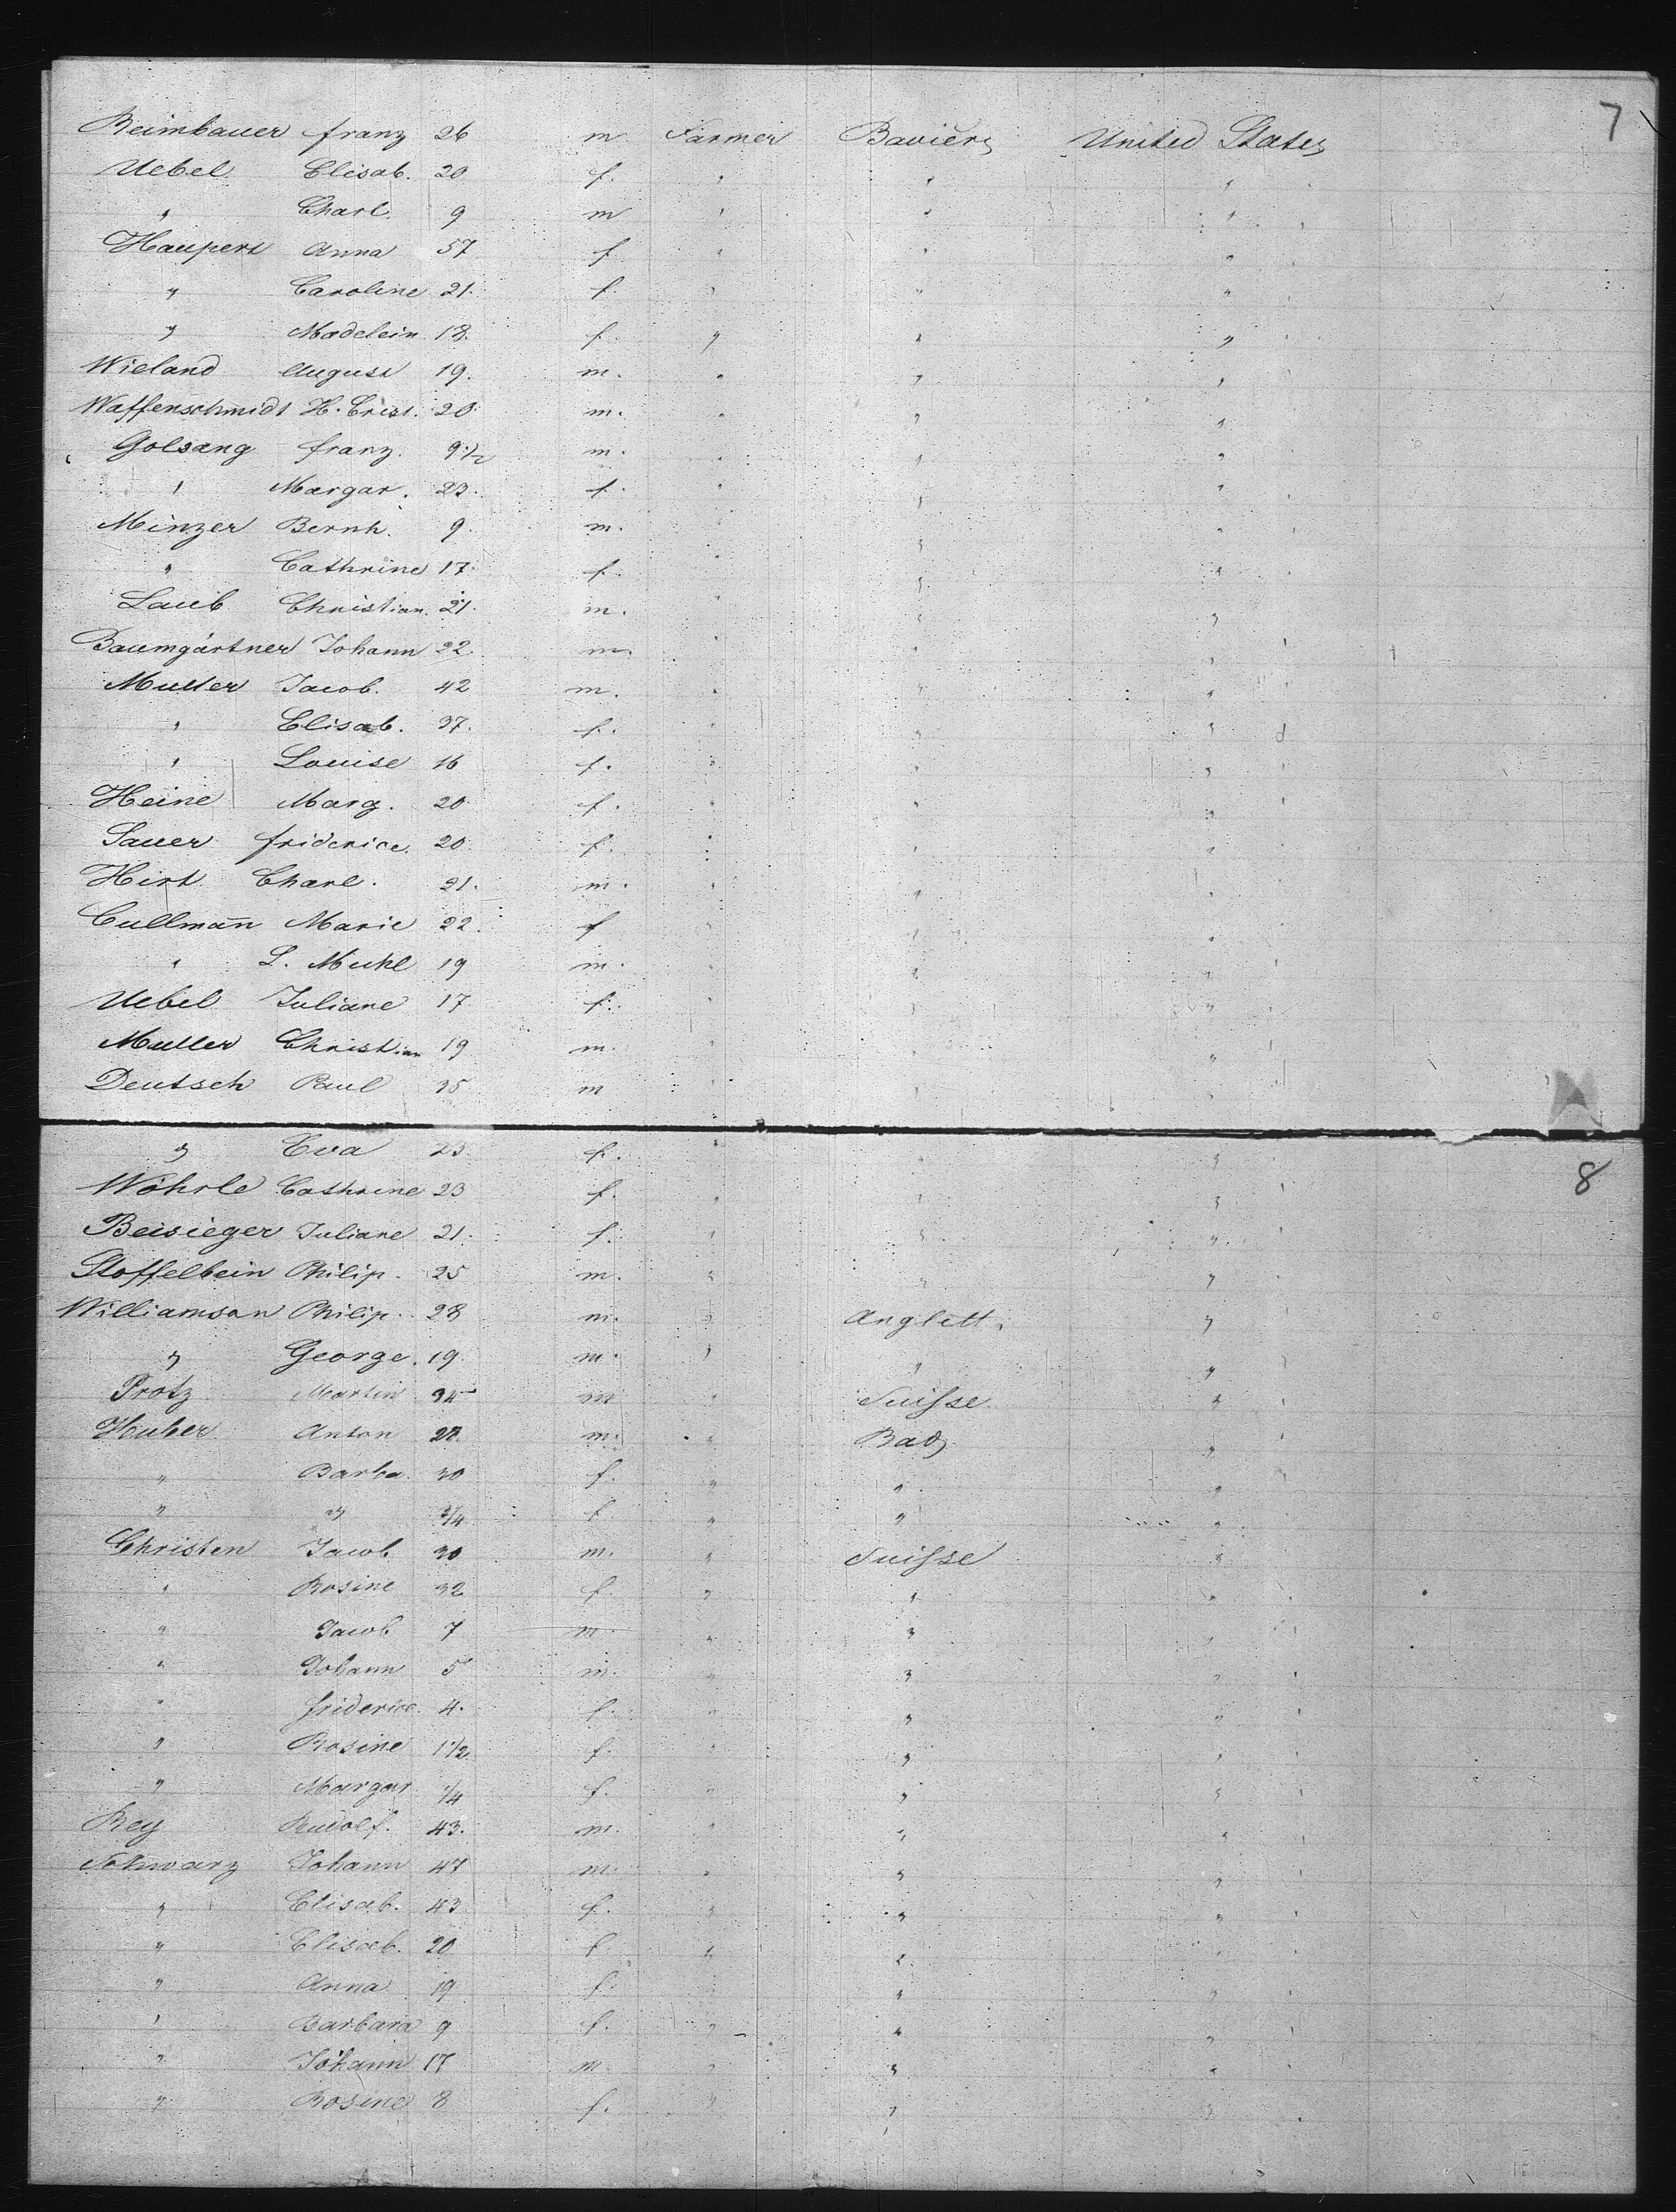 7
Beimbauer franz 26 m Farmer Baviere United States
Uebel Elisab. 20 f. " " "
" Charl. 9 m " " "
Haupert Anna 57 f " " "
" Caroline 21. f. " " "
" Madelein. 18. f. " " "
Wieland August 19. m. " " "
Waffenschmidt H. Crist. 20. m. " " "
Golsang franz. 9 1/2 m. " " "
" Margar. 23. f. " " "
Minzer Bernh. 9. m. " " "
" Cathrine 17. f. " " "
Laub Christian. 21. m. " " "
Baumgärtner Johann 22. m. " " "
Muller Jacob. 42 m. " " "
" Elisab. 37. f. " " "
" Louise 16 f. " " "
Heine Marg. 20 f. " " "
Sauer friderice. 20 f. " " "
Hirt Charl. 21. m. " " "
Cullmañ Marie 22. f " " "
" L. Muhl 19 m. " " "
Uebel Juliane 17 f. " " "
Muller Christian 19 m. " " "
Deutsch Paul 35 m " " "
" Eva 23 f. " " "
8
Wöhrle Cathrine 23 f. " " "
Beisieger Juliane 21. f. " " "
Stoffelbein Philip. 25 m. " " "
Williamson Philip. 28 m. " Anglett. "
" George. 19. m. " " "
Protz Martin 34 m " Suisse "
Huber Anton 28. m. " Bade "
" Barba. 30 f. " " "
" " 3/4 f " " "
Christen Jacob 30 m. " Suisse "
" Rosine 32 f. " " "
" Jacob 7 m. " " "
" Johann 5 m. " " "
" friderice. 4. f. " " "
" Rosine 1 1/2 f. " " "
" Margar. 1/4 f. " " "
Rey Rudolf. 43. m. " " "
Schwarz Johann 47 m. " " "
" Elisab. 43 f. " " "
" Elisab. 20 f. " " "
" Anna 19 f. " " "
" Barbara 9 f. " " "
" Johann 17 m. " " "
" Rosine 8 f. " " "